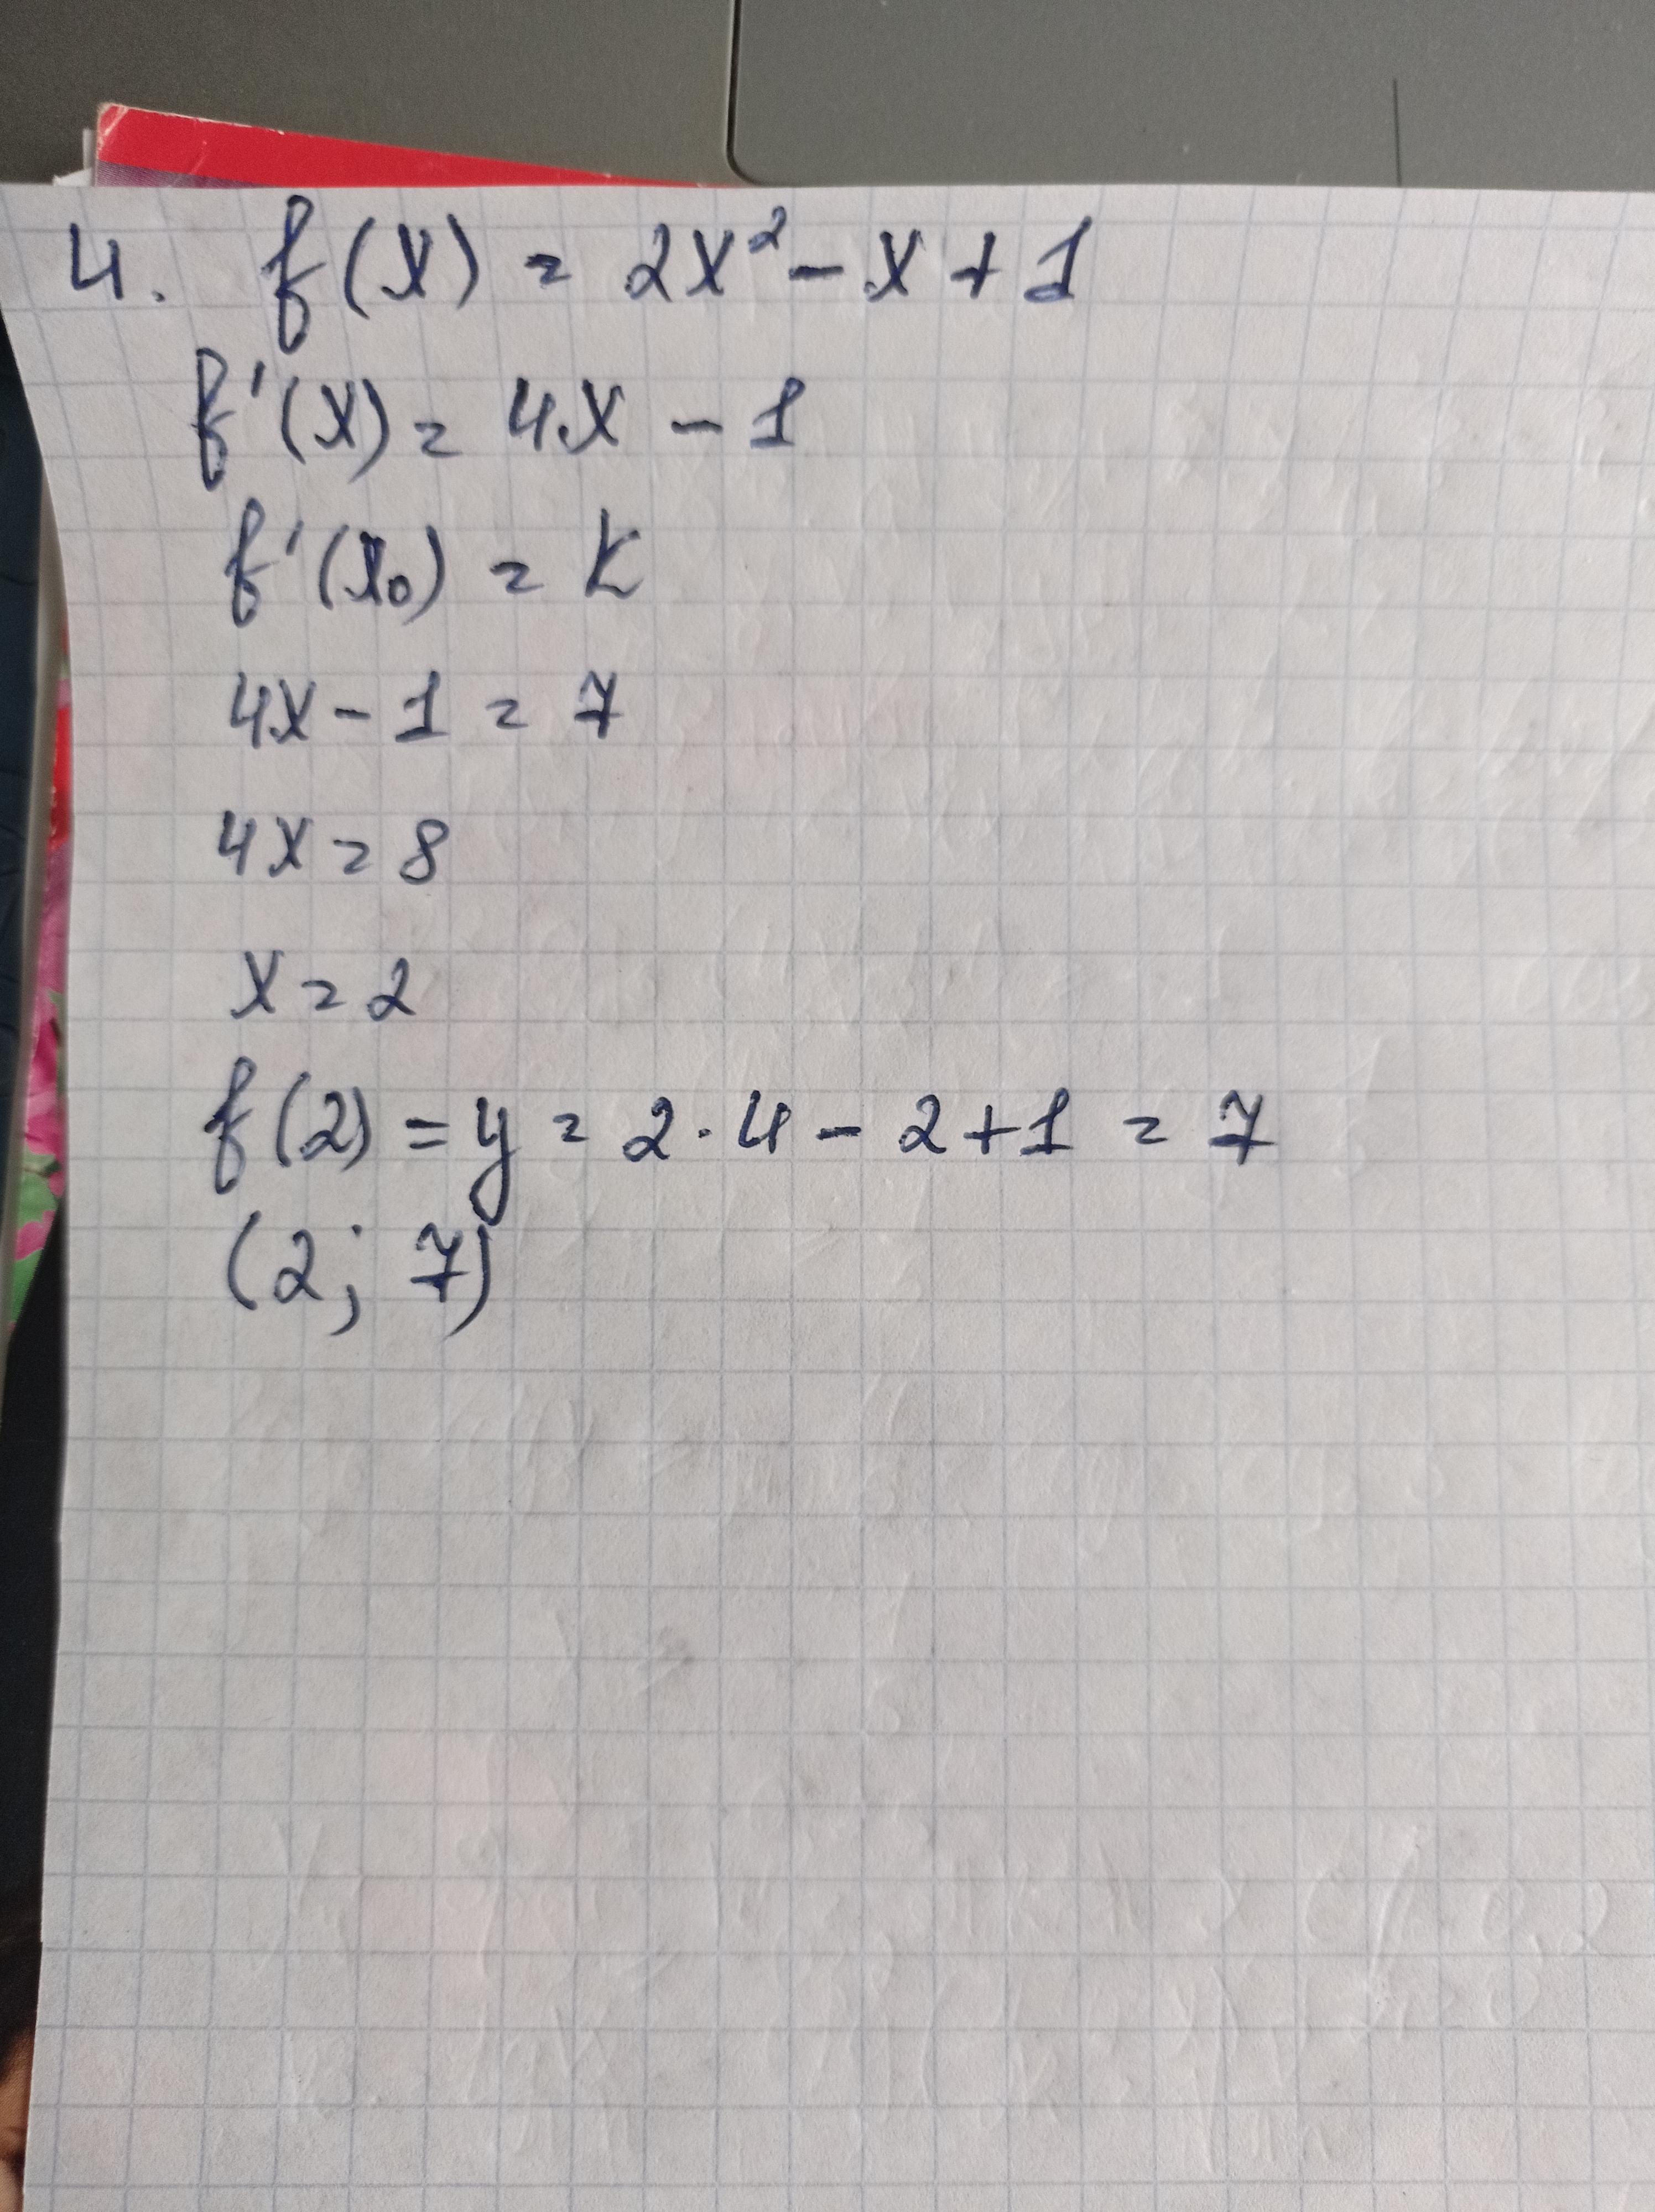 4. f(x) = 2x² - x + 1
f'(x) = 4x - 1
f'(x₀) = k
4x - 1 = 7
4x = 8
x = 2
f(2) = y = 2·4 - 2 + 1 = 7
(2; 7)